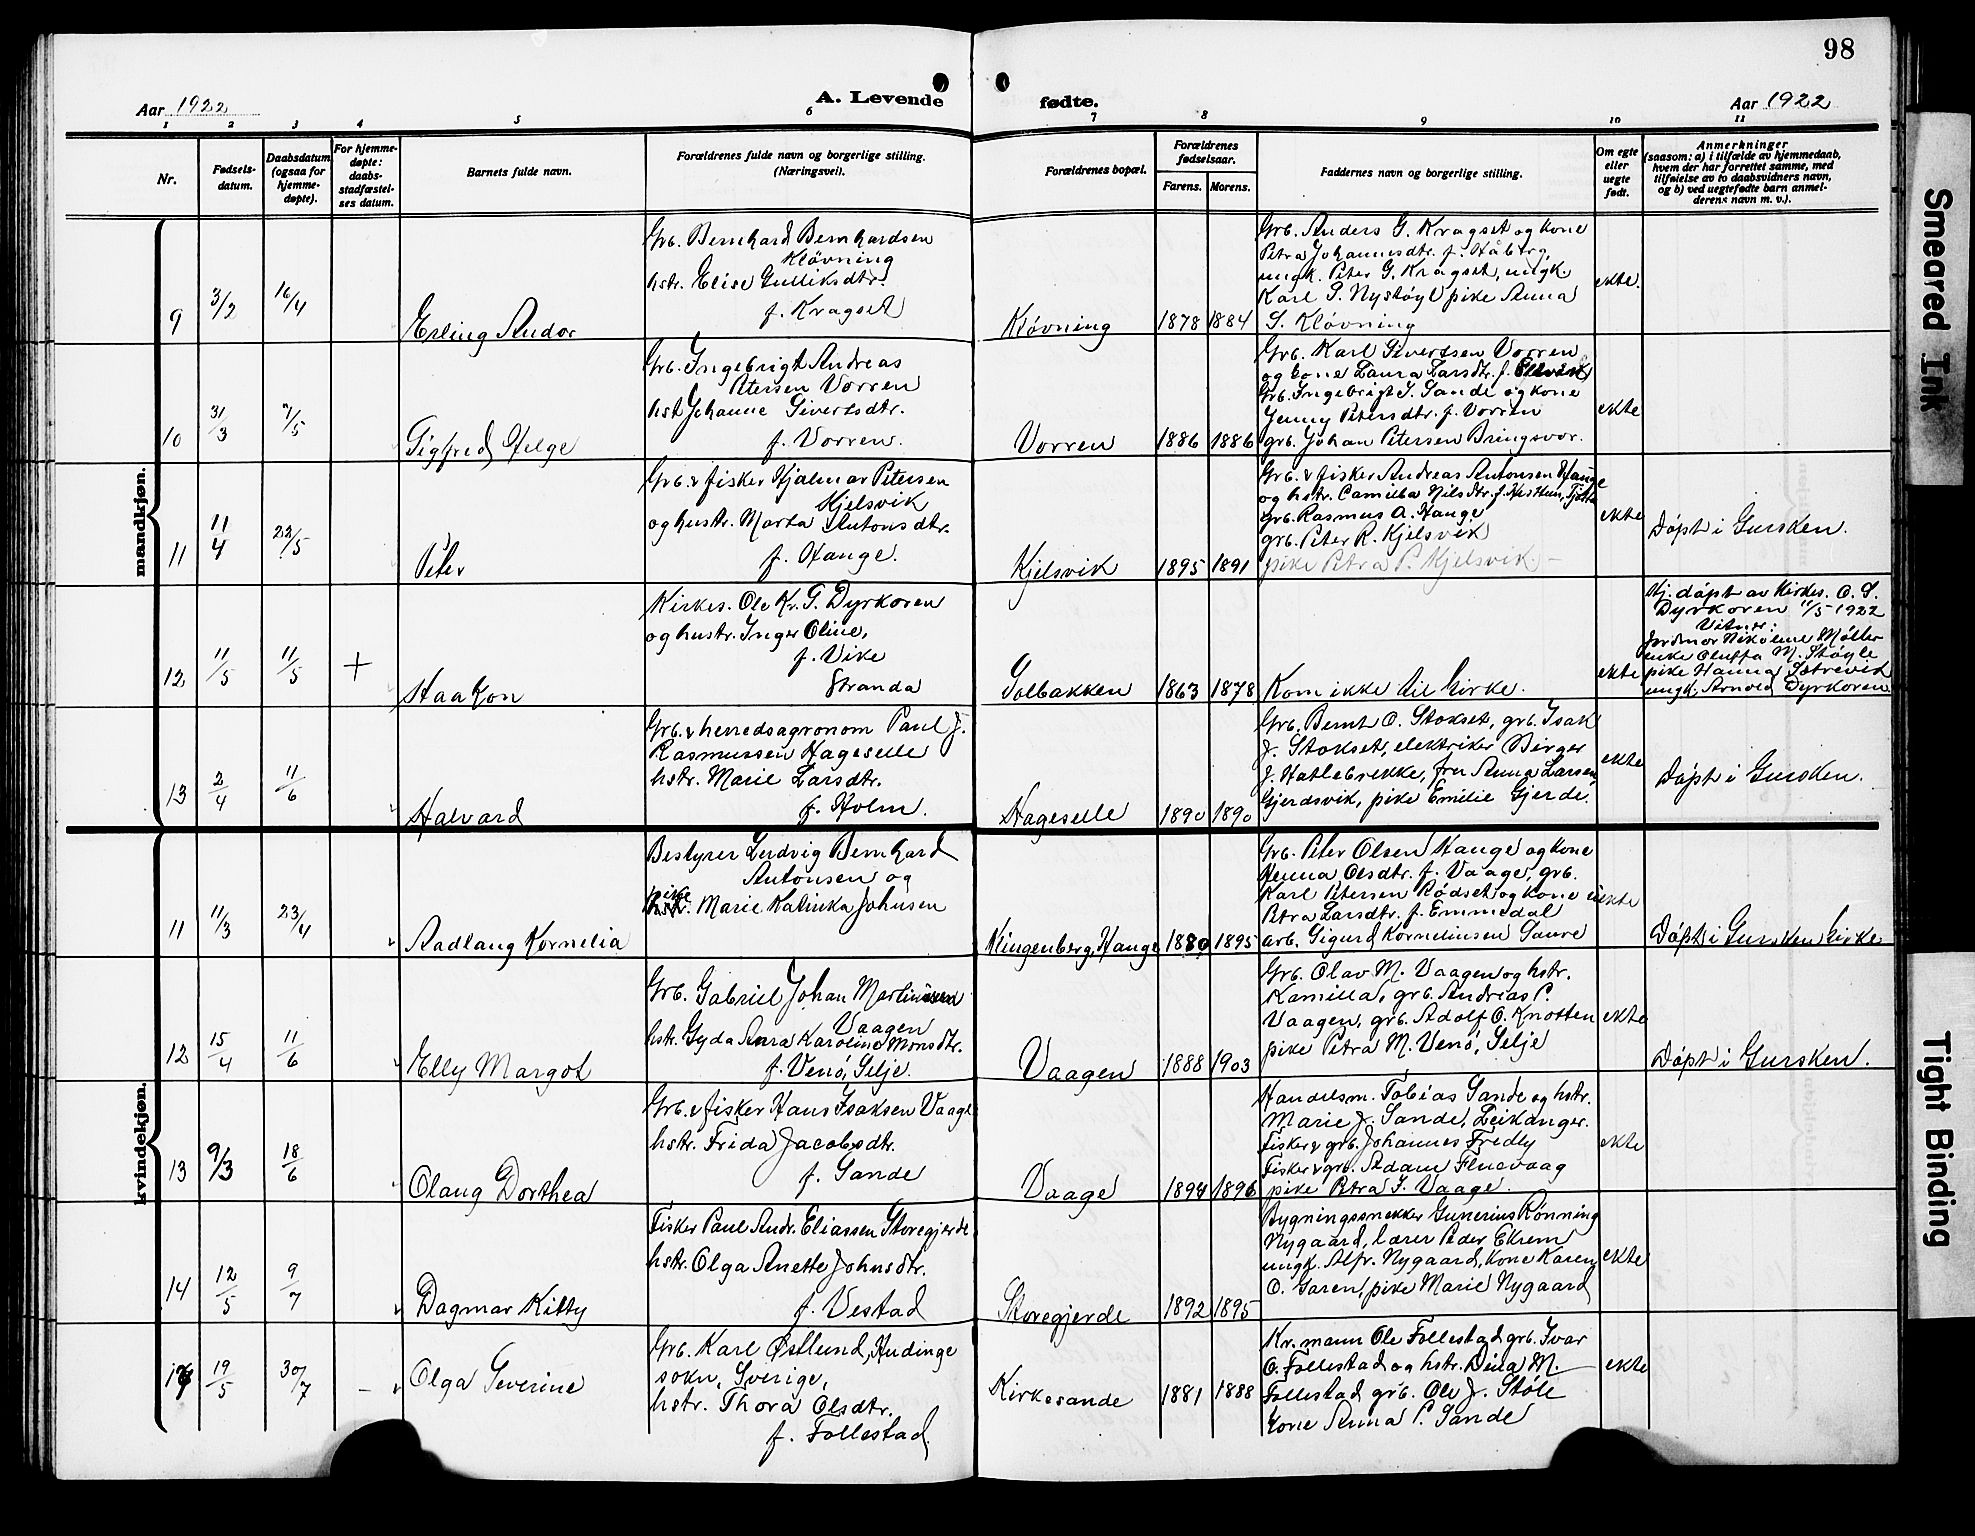 98
Aar 1922
A. Levende
fødte.
Aar 1922
1 2 3 4 5 6 7 8 9 10 11
Nr.
Fødsels-
datum.
Daabsdatum
(ogsaa for
hjemme-
døpte).
For hjemme-
døpte:
daabs-
stadfæstel-
ses datum.
Barnets fulde navn.
Forældrenes fulde navn og borgerlige stilling.
(Næringsvei).
Forældrenes bopæl.
Forældrenes
fødselsaar.
Farens. Morens.
Faddernes navn og borgerlige stilling.
Om egte
eller
uegte
født.
Anmerkninger
(saasom: a) i tilfælde av hjemmedaab,
hvem der har forrettet samme, med
tilføielse av to daabsvidners navn,
og b) ved uegtefødte barn anmel-
derens navn m. v.).
mandkjøn.
9
3/2
16/4
Erling Andor
Grb. Bernhard Bernhardsen
Kløvning
hstr. Elise Gulliksdtr.
f. Kragset
Kløvning
1878 1884
Grb. Anders G. Kragset og kone
Petra Johannesdtr. f. Håberg,
ungk. Peter G. Kragset, ungk.
Karl S. Nystøyl pike Anna
S. Kløvning
ekte.
10
31/3
7/5
Sigfred Helge
Grb. Ingebrigt Andreas
Petersen Vorren
hst Johanne Sivertsdtr.
f. Vorren.
Vorren
1886 1886
Grb. Karl Sivertsen Vorren
og kone Laura Larsdtr. f.
Grb. Ingebrigt S. Sande og kone
Jenny Petersdtr. f. Vorren
grb. Johan Petersen Bringsvor.
ekte
11
11/4
22/5
Peter
Grb. & fisker Hjalmar Petersen
Kjelsvik
og hustr. Marta Antonsdtr.
f. Hauge.
Kjelsvik
1895 1891
Grb. & fisker Andreas Antonsen Hauge
og hstr. Camilla Nilsdtr. f.
grb. Rasmus A. Hauge
grb. Peter R. Kjelsvik
pike Petra P. Kjelsvik.
ekte
Døpt i Gursken.
12
11/5
11/5
+
Haakon
Kirkes. Ole Kr. S. Dyrkoren
og hustr. Inger Oline,
f. Vike
Stranda
Solbakken
1863 1878
Kom ikke til kirke.
ekte
Hj. døpt av Kirkes. O. S.
Dyrkoren 11/5-1922
Vitner:
Jordmor Nikoline Møller
enke Oluffa M. Støyle
pike Hanna Sætrevik
ungk. Arnold Dyrkoren
13
2/4
11/6
Halvard
Grb. & herredsagronom Paul J.
Rasmussen Hageselle
hstr. Marie Larsdtr.
f. Holm.
Hageselle
1890 1890
Grb. Bernt O. Stokset, grb. Isak
J. Stokset, elektriker Birger
J. Hatlebrekke, fru Anna Larsen
Gjerdsvik, pike Emilie Gjerde.
ekte
Døpt i Gursken.
kvindekjøn.
11
11/3
23/4
Aadlaug Kornelia
Bestyrer Ludvig Bernhard
Antonsen og
pike
hstr. Marie Kalinka Johnsen
Klingenberg, Hauge
1880 1895
Grb. Peter Olsen Hauge og kone
Anna Olsdtr. f. Vaage, grb.
Karl Petersen Rødset og kone
Petra Larsdtr. f. Emmedal
arb. Sigurd Korneliussen Saure
uekte
Døpt i Gursken kirke
12
15/4
11/6
Elly Margot
Grb. Gabriel Johan Martinussen
Vaagen
hstr. Gyda Anna Karoline Monsdtr.
f. Venø, Selje.
Vaagen
1888 1903
Grb. Olav M. Vaagen og hstr.
Kamilla, grb. Andreas P.
Vaagen, grb. Adolf O. Knotten
pike Petra M. Venø, Selje
ekte
Døpt i Gursken.
13
9/3
18/6
Olaug Dorthea
Grb. & fisker Hans Isaksen Vaage
hstr. Frida Jacobsdtr.
f. Sande
Vaage
1894 1896
Handelsm. Tobias Sande og hstr.
Marie J. Sande, Leikanger.
Fisker & grb. Johannes Fredly
Fisker & grb. Adam Fluevaag
pike Petra I. Vaage.
ekte
14
12/5
9/7
Dagmar Kitty
Fisker Paul Andr. Eliassen Storegjerde
hstr. Olga Anette Johnsdtr.
f. Vestad
Storegjerde
1892 1895
Bygningssnekker Gunerius Rønning
Nygaard, lærer Peder Ekrem
ungk. Alfr. Nygaard, kone Karen
O. Garen, pike Marie Nygaard
ekte
19/5
30/7
–
Olga Severine
Grb. Karl Østlund, Hudinge
sokn, Sverige,
hstr. Thora Olsdtr.
f. Follestad
Kirkesande
1881 1888
Kr. mann Ole Follestad, grb. Ivar
O. Follestad og hstr. Dina M.
Follestad grb. Ole J. Støle
Kone Anna P. Sande
ekte
Smeared Ink
Tight Binding